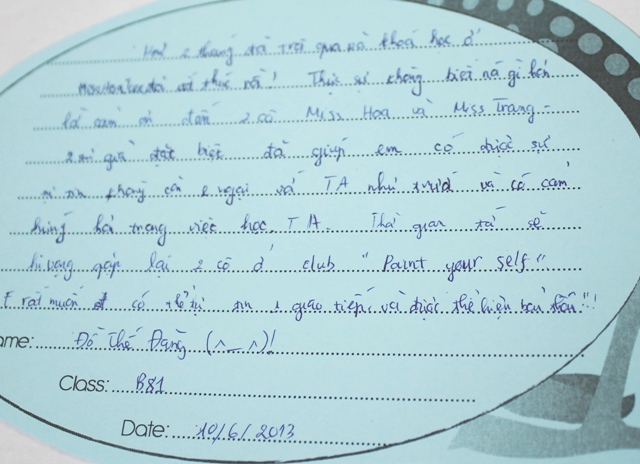 Hơn 2 tháng đã trôi qua và khoá học ở
đã kết thúc rồi! Thực sự không biết nói gì hơn
là cảm ơn đến 2 cô Miss Hoa và Miss Trang -
2 đã giúp em có được sự
tự tin không còn e ngại với TA như trước và có cảm
hứng hơn trong việc học TA. Thời gian tới sẽ
hi vọng gặp lại 2 cô ở club "Paint your self"
E rất muốn có thể tự tin giao tiếp và được thể hiện bản thân"!
ame: Đỗ Thế Đang (^_^)!
Class: B81
Date: 10/6/2013